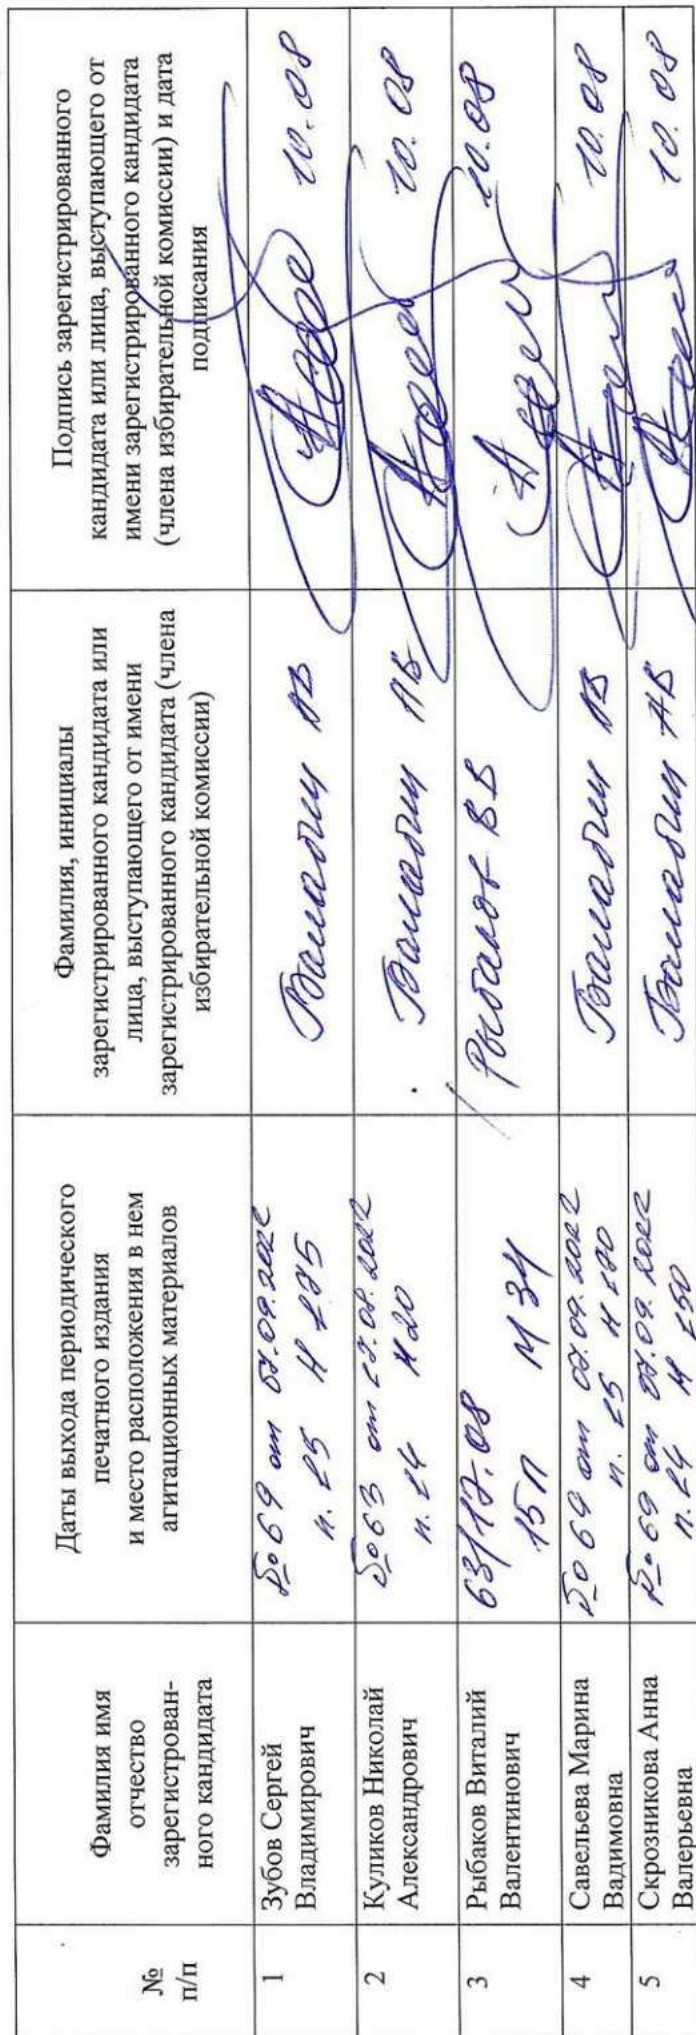 №
п/п
Фамилия имя
отчество
зарегистрирован-
ного кандидата
Даты выхода периодического
печатного издания
и место расположения в нем
агитационных материалов
Фамилия, инициалы
зарегистрированного кандидата или
лица, выступающего от имени
зарегистрированного кандидата (члена
избирательной комиссии)
Подпись зарегистрированного
кандидата или лица, выступающего от
имени зарегистрированного кандидата
(члена избирательной комиссии) и дата
подписания
1
Зубов Сергей
Владимирович
№ 69 от 07.09.2022
п. 25 М
АВ
10.08
2
Куликов Николай
Александрович
№ 63 от 17.08.2022
п. 24 М 20
АВ
10.08
3
Рыбаков Виталий
Валентинович
63/17.08
15П М 34
Рыбаков ВВ
10.08
4
Савельева Марина
Вадимовна
№ 69 от 07.09.2022
п. 25 М
АВ
10.08
5
Скрозникова Анна
Валерьевна
№ 69 от 07.09.2022
п. 24 М
АВ
10.08